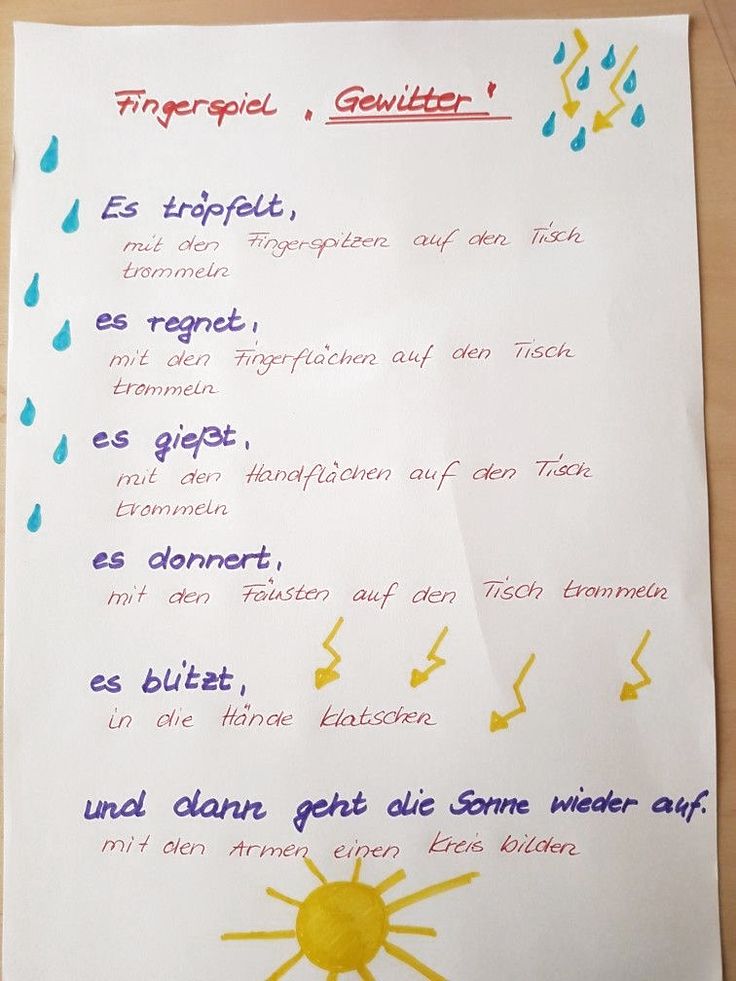 Fingerspiel „Gewitter"
Es tröpfelt,
mit den Fingerspitzen auf den Tisch
trommeln
es regnet,
mit den Fingerflächen auf den Tisch
trommeln
es gießt,
mit den Handflächen auf den Tisch
trommeln
es donnert,
mit den Fäusten auf den Tisch trommeln
es blitzt,
in die Hände klatschen
und dann geht die Sonne wieder auf.
mit den Armen einen Kreis bilden